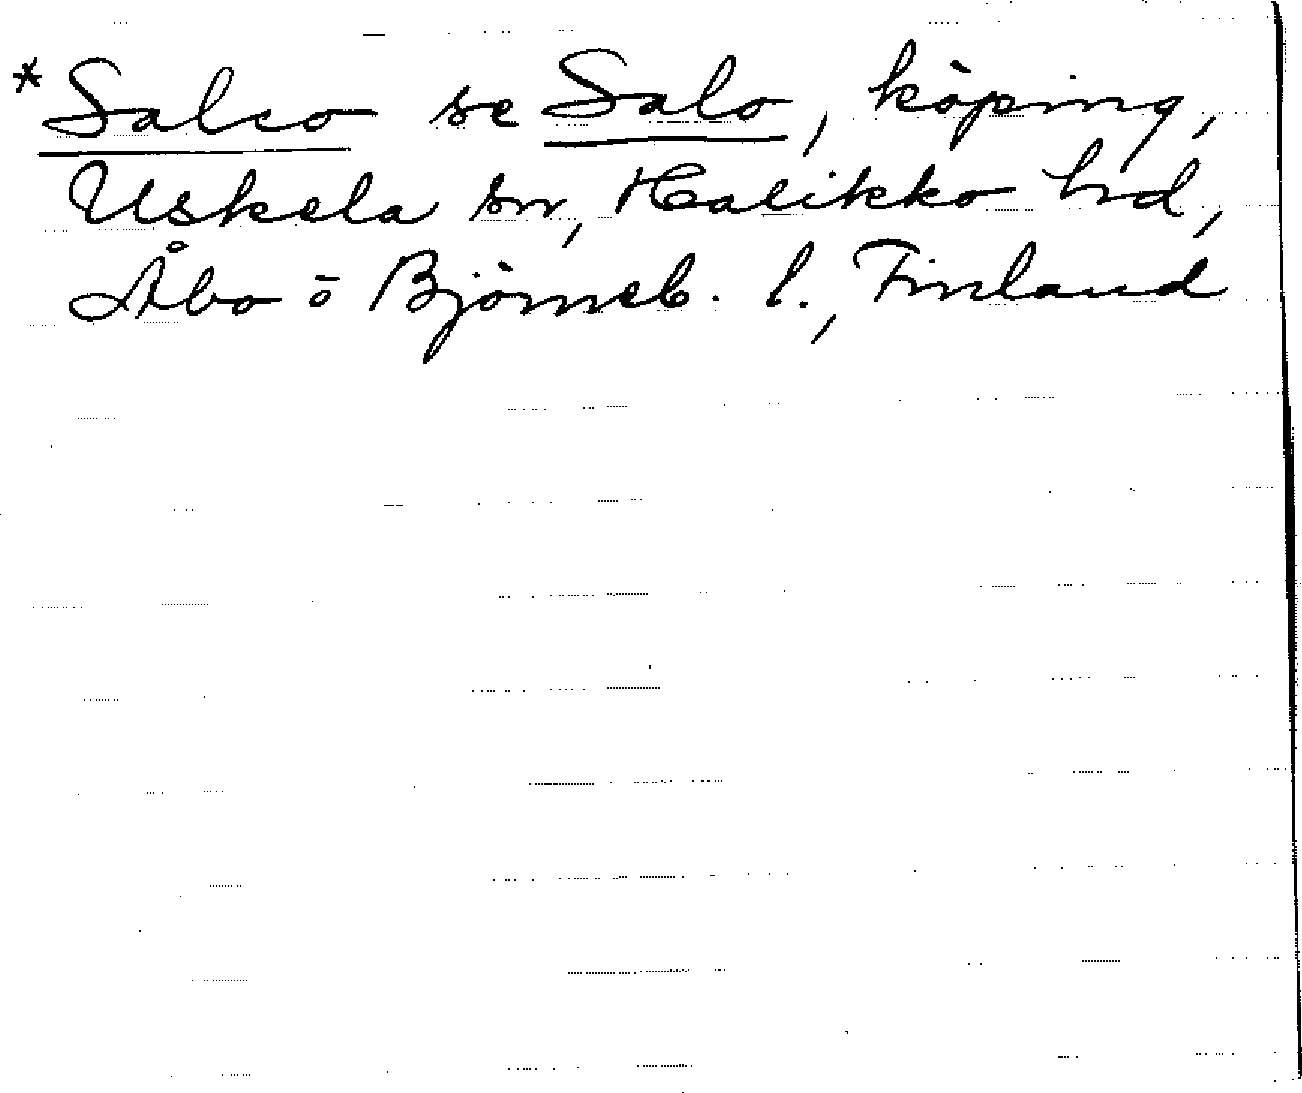 *Salco se Salo, köping,
Uskela sn, Halikko hd,
Åbo o Björneb. l., Finland